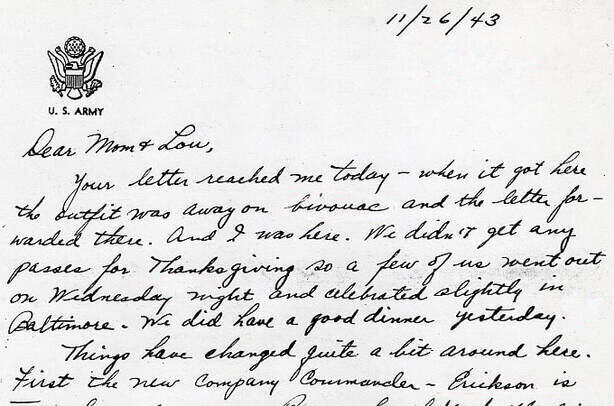 11/26/43
U. S. ARMY
Dear Mom & Lou,
Your letter reached me today – when it got here
the outfit was away on bivouac and the letter for-
warded there. And I was here. We didn't get any
passes for Thanksgiving so a few of us went out
on Wednesday night and celebrated slightly in
Baltimore. We did have a good dinner yesterday.
Things have changed quite a bit around here.
First the new Company Commander – Erickson is